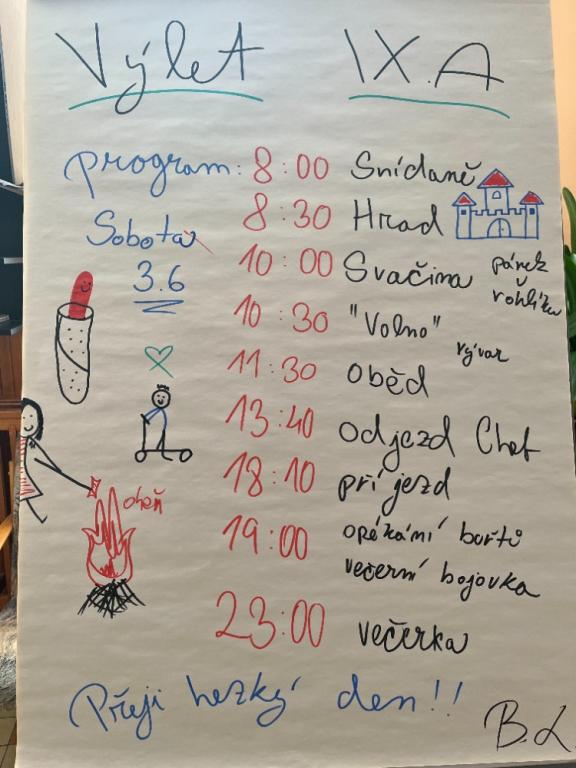 Výlet IX.A
program: 8:00 Snídaně
Sobota 8:30 Hrad
3.6 10:00 Svačina párek v rohlíku
10:30 "Volno"
vývar
11:30 oběd
13:40 odjezd Cheb
18:10 příjezd
oheň
19:00 opékání buřtů
večerní bojovka
23:00 večerka
Přeji hezký den!!
B.L.